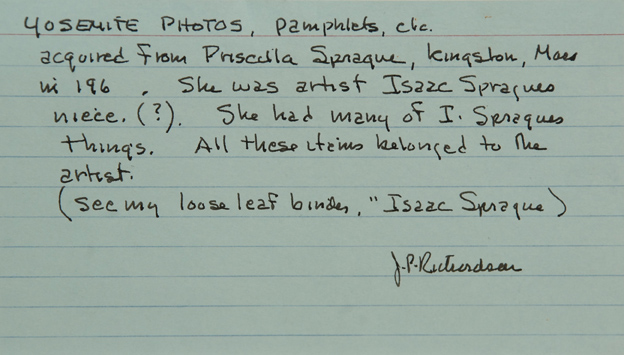 YOSEMITE PHOTOS, Pamphlets, etc.
acquired from Priscilla Sprague, Kingston, Mass
in 196 . She was artist Isaac Spragues
niece. (?). She had many of I. Spragues
things. All these items belonged to the
artist.
(see my loose leaf binder, "Isaac Sprague)
J.P. Richardson